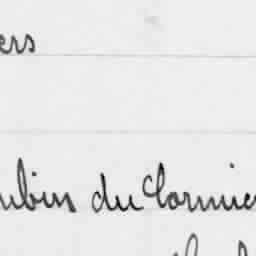 ers
ubin du Cormie